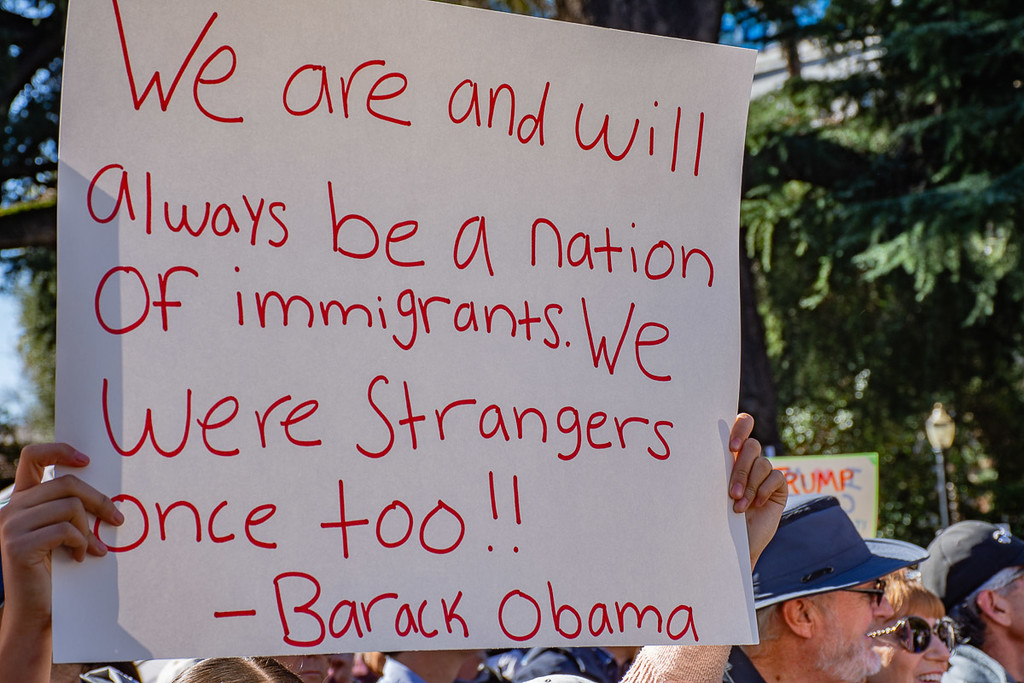 We are and will
always be a nation
of immigrants. We
were strangers
once too!!
- Barack Obama
TRUMP